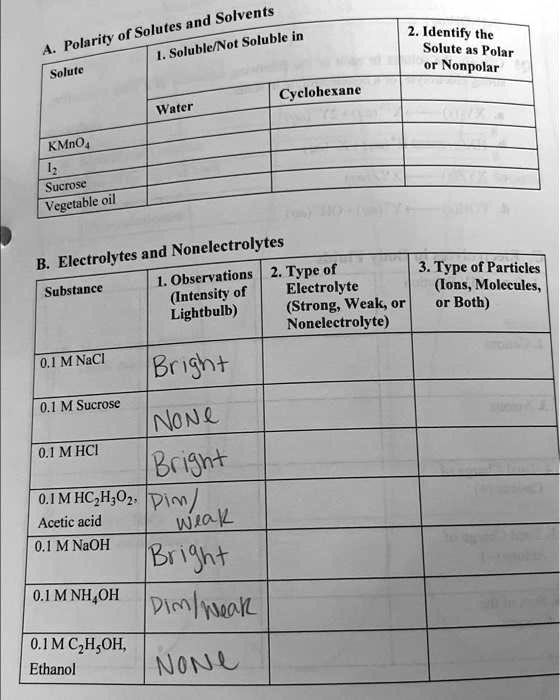 A. Polarity of Solutes and Solvents
Solute
1. Soluble/Not Soluble in
2. Identify the
Solute as Polar
or Nonpolar
Water
Cyclohexane
KMnO₄
I₂
Sucrose
Vegetable oil
B. Electrolytes and Nonelectrolytes
Substance
1. Observations
(Intensity of
Lightbulb)
2. Type of
Electrolyte
(Strong, Weak, or
Nonelectrolyte)
3. Type of Particles
(Ions, Molecules,
or Both)
0.1 M NaCl
Bright
0.1 M Sucrose
NONe
0.1 M HCl
Bright
0.1 M HC₂H₃O₂,
Acetic acid
Dim/
Weak
0.1 M NaOH
Bright
0.1 M NH₄OH
Dim/Weak
0.1 M C₂H₅OH,
Ethanol
NONe